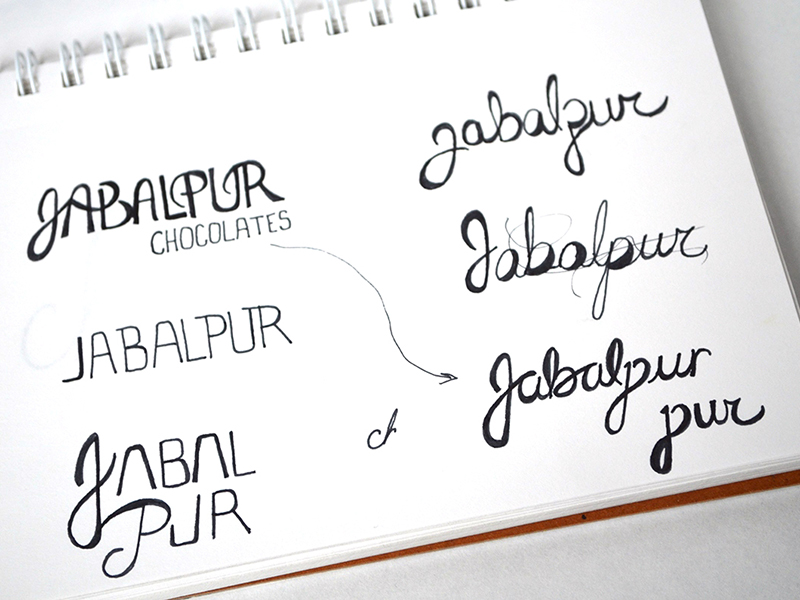 JABALPUR
CHOCOLATES
JABALPUR
JABAL
PUR
ch
jabalpur
Jabalpur
Jabalpur
pur